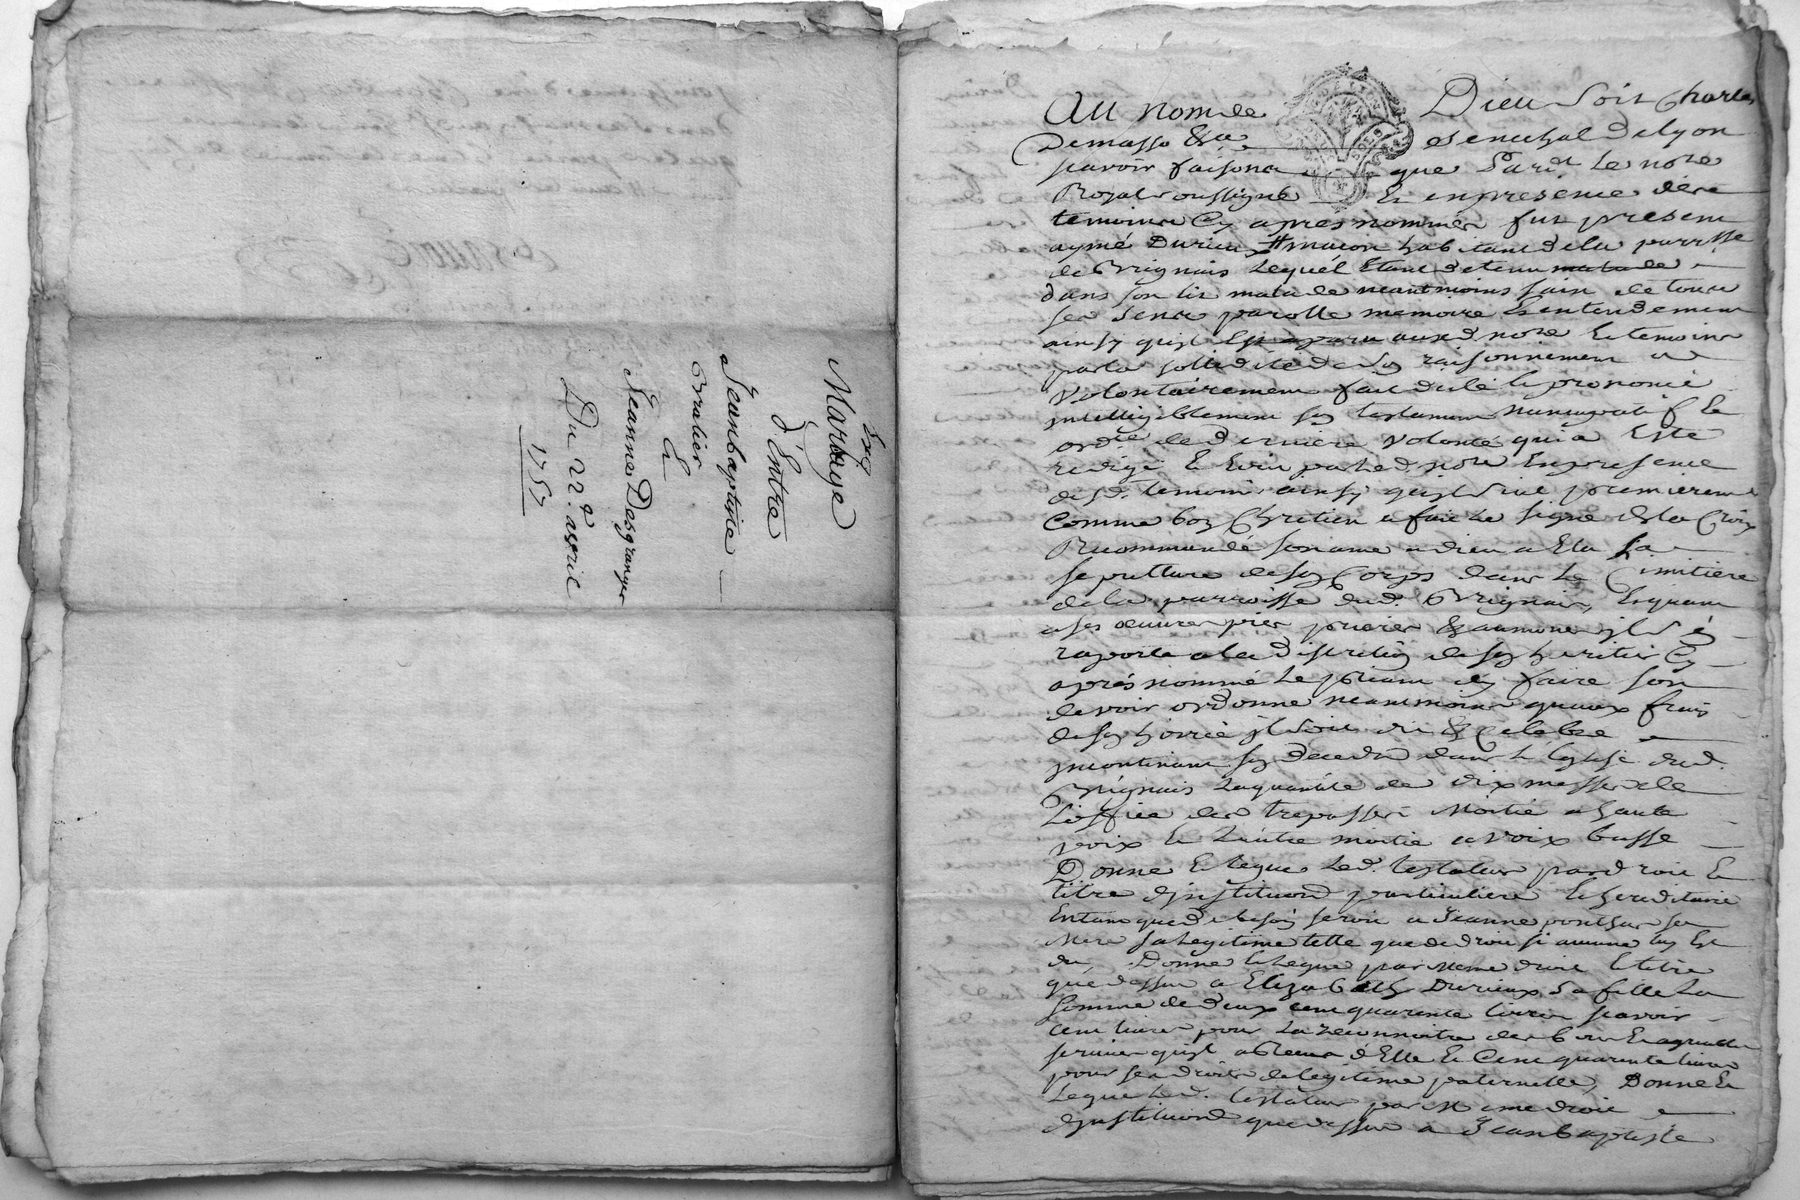 Exp.
Mariage
d'Entre
Jeanbaptiste
Bralier
&
Jeanne Desgranger
Du 22e. avril
1757
Au nom de Dieu Soit Charles
Demasso &ca senechal de lyon
scavoir faisons que Pard. Le nore
Royal soussigné Et en presence des
temoins Cy apres nommés fut present
aymé Durieu masson habitant de la parroisse
de Brignais Lequel Etant detenu malade
dans son lit malade neantmoins sain de tous
ses sens parolle memoire Et entendement
ainsy quil Est aparu aux d nore Et temoins
par la sollidité de son raisonnement a
Volontairement fait dicté Et prononcé
intelligiblement son testament nuncupatif Et
ordce de derniere Volonté qui a Esté
redigé Et Ecrit par led. nore En presence
desd. temoins ainsy quil suit premierement
Comme bon Chretien a fait Le signe de la Croix
Recommandé son ame a dieu a Elu sa
sepulture de son Corps dans Le Cimitiere
de la parroisse dud. Brignais, Et quant
a ses oeuvres pies prieres & aumones il s'en
raporte a la discretion de son heritier Cy
aprés nommé Le priant den faire son
devoir ordonne neantmoins quaux frais
de son hoirie il soit dit & Celebré
incontinant son decedé dans L'Eglise dud.
Brignais La quantité de dix messes de
L'office des trepassés Moitié a haute
voix Et L'autre moitié a voix basse
Donne Et legue Led. testateur par droit Et
titre d'institution particuliere Et hereditaire
Entant que de besoin seroit a Jeanne ponthus sa
Mere sa Legitime telle que de droit si aucune luy Est
du, Donne Et Legue par Meme droit Et titre
que dessus a Elizabeth Durieux Sa fille La
somme de deux cent quarante livres scavoir
cent livres pour La reconnoitre des bons Et agreables
services quil a Receus d'Elle Et Cent quarante livres
pour ses droits de legitime paternelle, Donne Et
Legue Led. testateur par Meme droit
d'institution que dessus a Jean baptiste